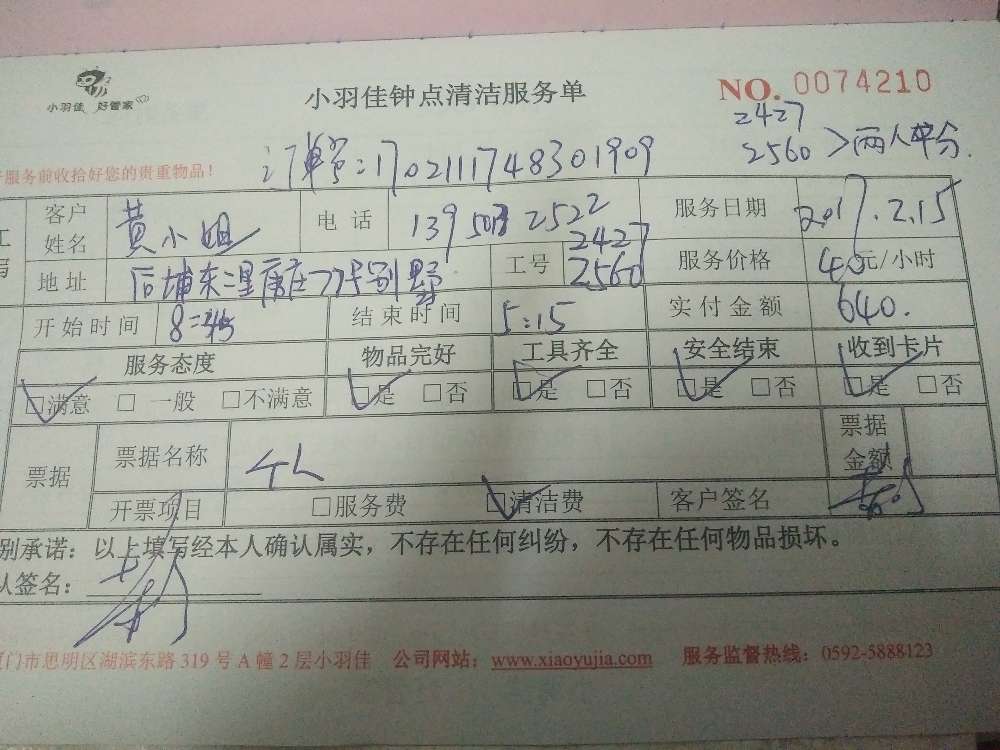 小羽佳 好管家
小羽佳钟点清洁服务单
NO. 0074210
2427
2560 >两人平分
订单号:1702111748301909
服务前收拾好您的贵重物品!
客户姓名 黄小姐 电话 2522 服务日期 2017.2.15
地址 后埔东二里 77号别野 工号 2427 2560 服务价格 40元/小时
开始时间 8: 结束时间 5:15 实付金额 640.
服务态度 物品完好 工具齐全 安全结束 收到卡片
☑满意 □ 一般 □不满意 ☑是 □否 ☑是 □否 ☑是 □否 ☑是 □否
票据 票据名称 个人 票据金额
开票项目 □服务费 ☑清洁费 客户签名
别承诺:以上填写经本人确认属实,不存在任何纠纷,不存在任何物品损坏。
人签名:
门市思明区湖滨东路 319 号 A 幢 2 层小羽佳 公司网站:www.xiaoyujia.com 服务监督热线:0592-5888123